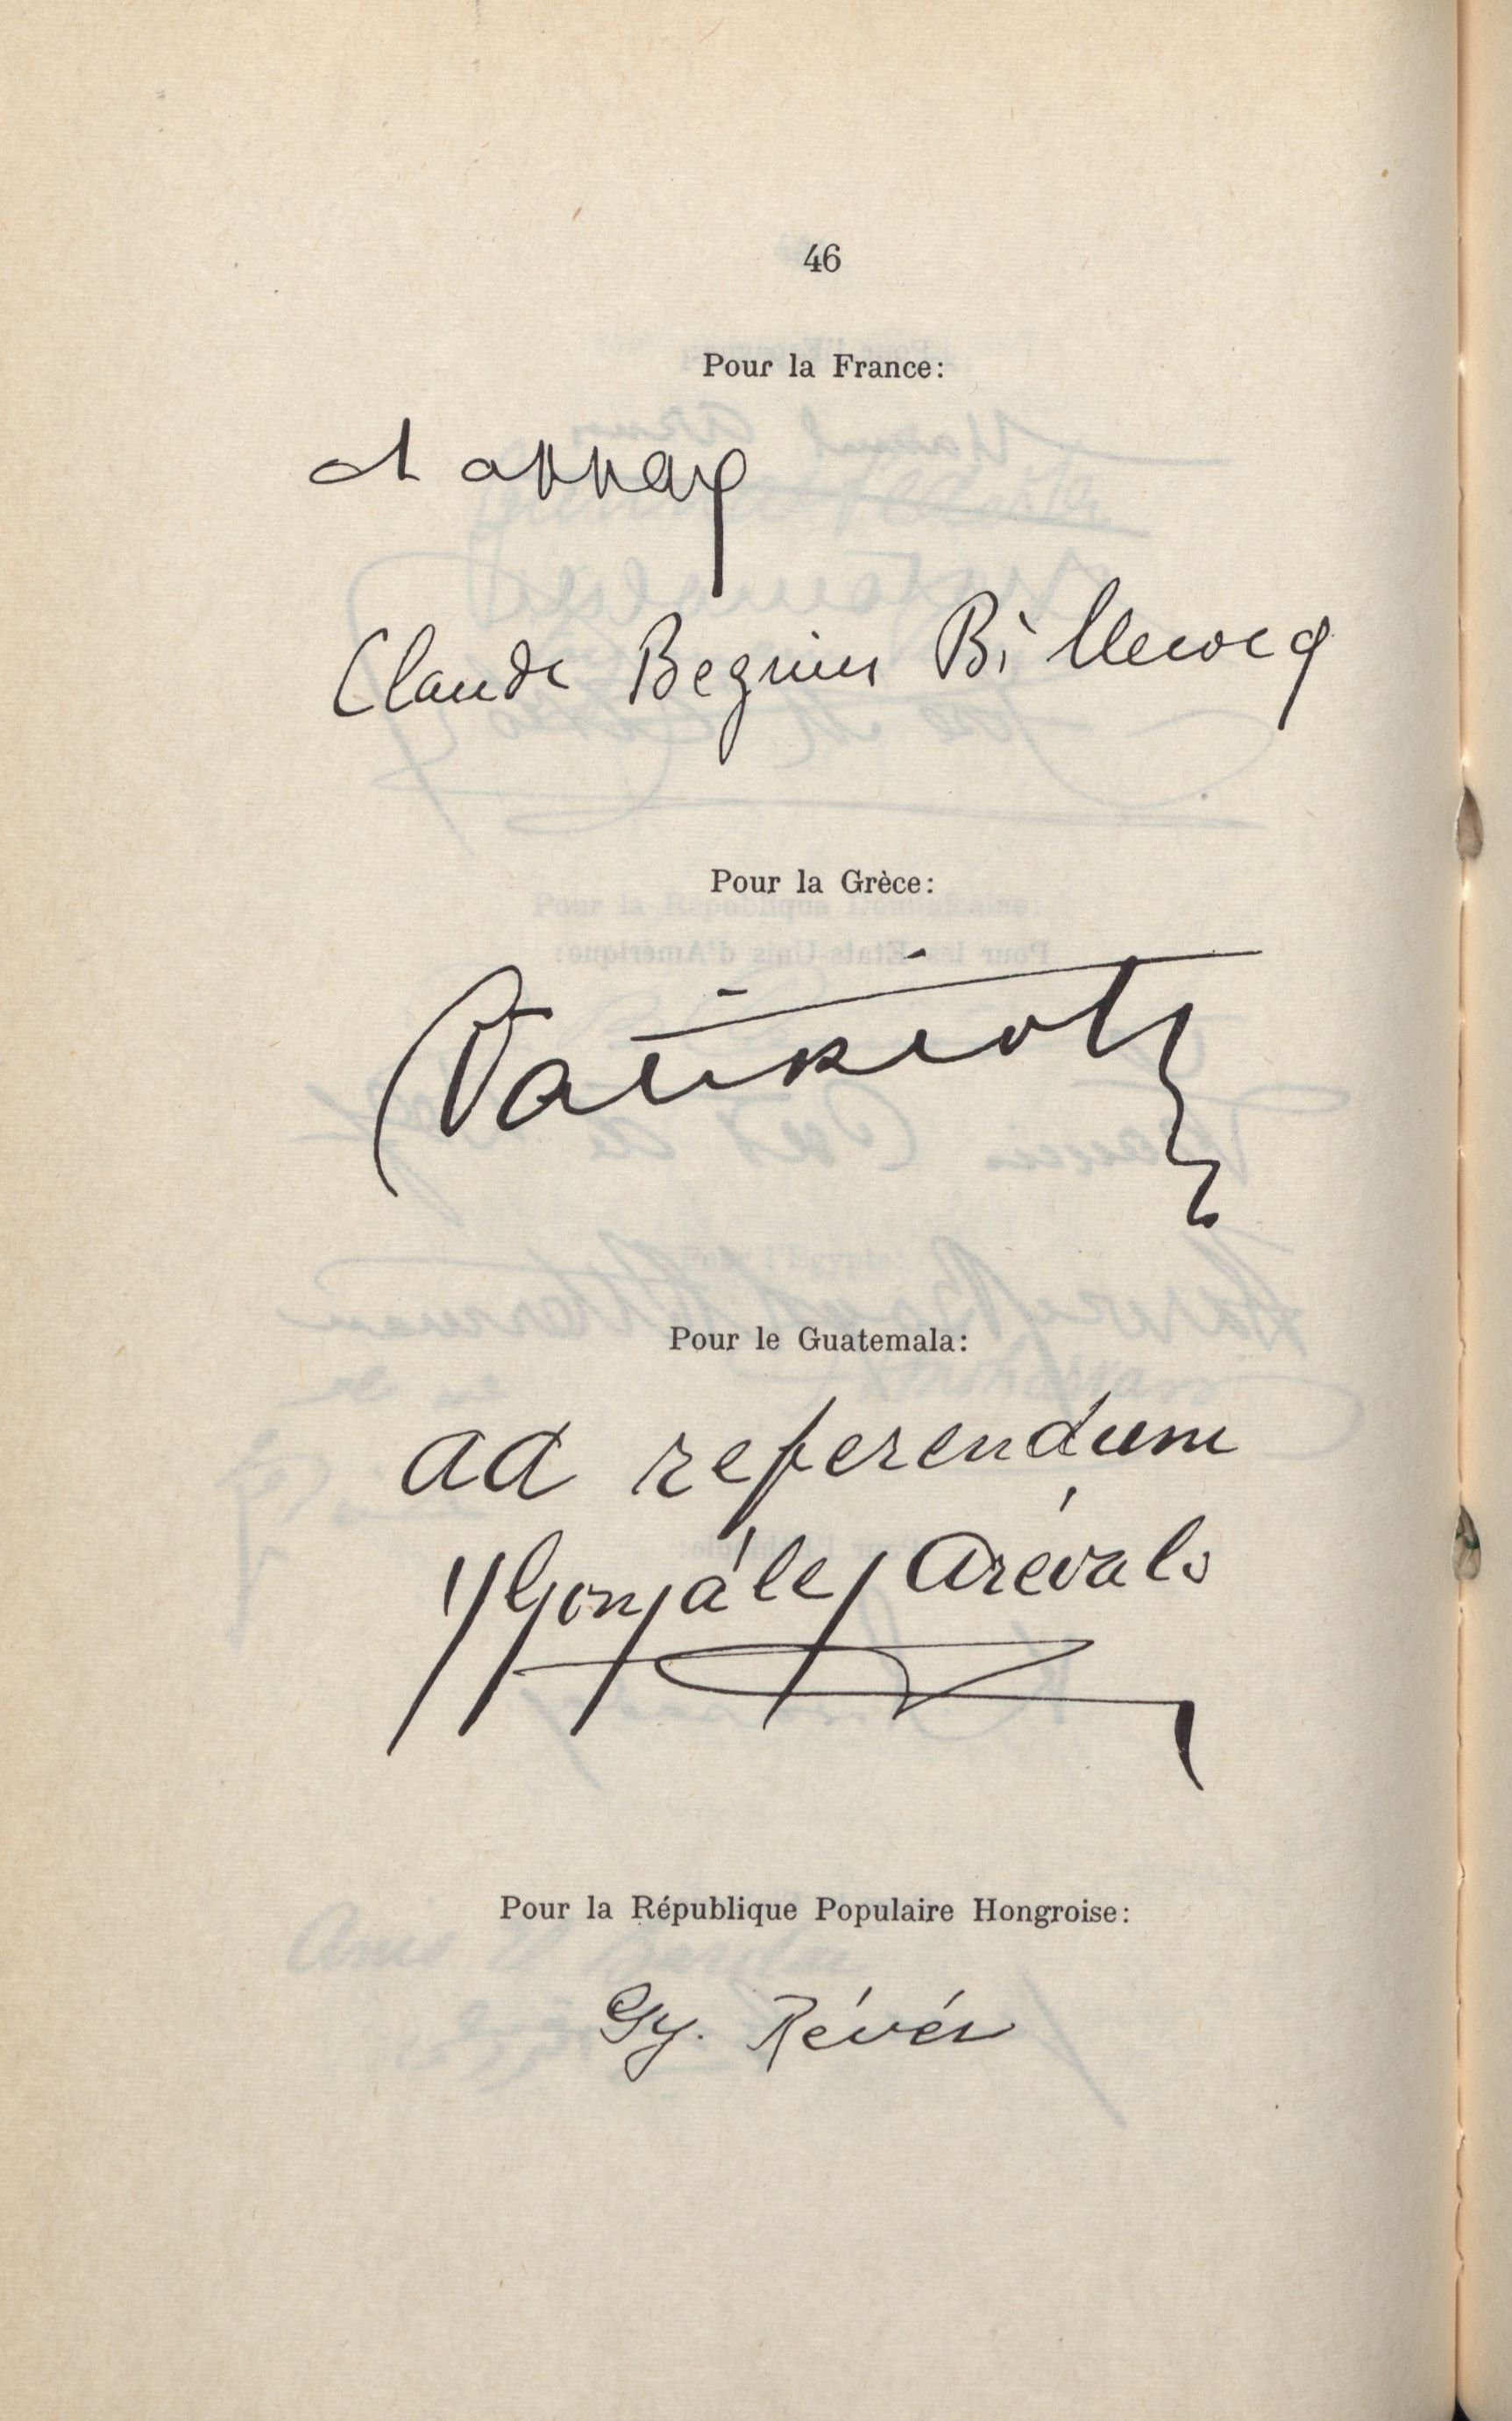 46
Pour la France:
Claude Begnin Billecocq
Pour la Grèce:
Pour le Guatemala:
ad referendum
González Arévalo
Pour la République Populaire Hongroise:
Gy. Révés